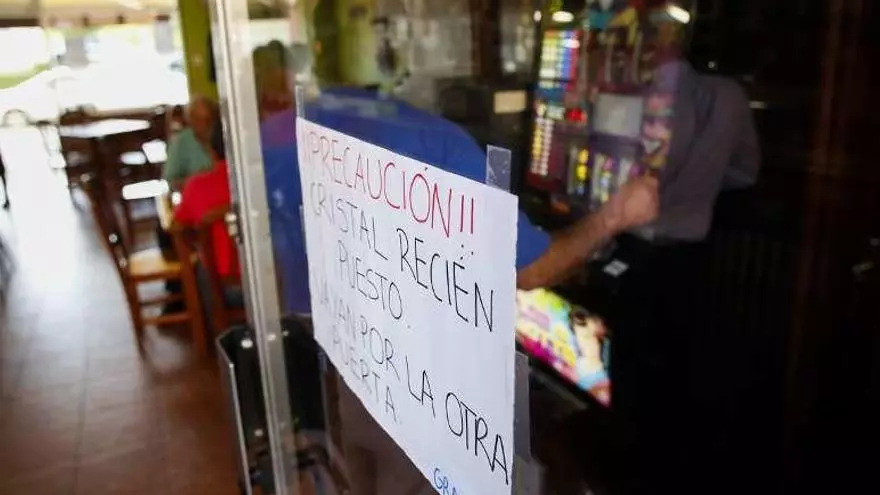 ¡¡PRECAUCIÓN!!
CRISTAL RECIÉN
PUESTO.
VAYAN POR LA OTRA
PUERTA.